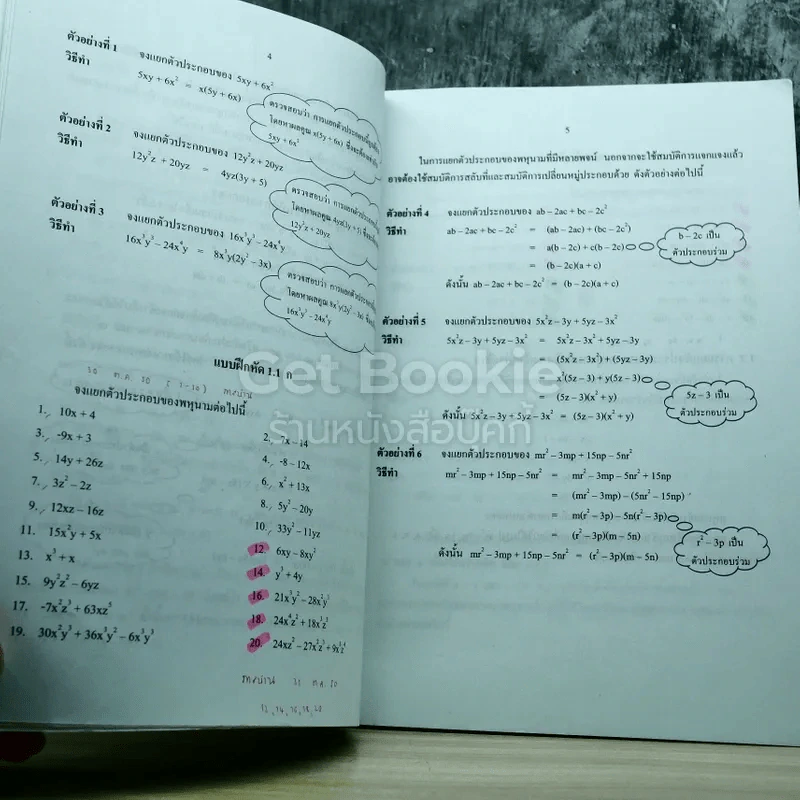 4
ตัวอย่างที่ 1 จงแยกตัวประกอบของ 5xy + 6x²
วิธีทำ 5xy + 6x² = x(5y + 6x)
ตรวจสอบว่า การแยกตัวประกอบ
โดยหาผลคูณ x(5y + 6x) ซึ่งจะต้อง
5xy + 6x²
ตัวอย่างที่ 2 จงแยกตัวประกอบของ 12y²z + 20yz
วิธีทำ 12y²z + 20yz = 4yz(3y + 5)
ตรวจสอบว่า การแยกตัวประกอบ
โดยหาผลคูณ 4yz(3y + 5) ซึ่งจะ
12y²z + 20yz
ตัวอย่างที่ 3 จงแยกตัวประกอบของ 16x³y³ – 24x⁴y
วิธีทำ 16x³y³ – 24x⁴y = 8x³y(2y² – 3x)
ตรวจสอบว่า การแยกตัวประกอบ
โดยหาผลคูณ 8x³y(2y² – 3x)
16x³y³ – 24x⁴y
แบบฝึกหัด 1.1 ก
30 ต.ค. 50 (1-10)
จงแยกตัวประกอบของพหุนามต่อไปนี้
1. 10x + 4
2. -7x – 14
3. -9x + 3
4. -8 – 12x
5. 14y + 26z
6. x² + 13x
7. 3z² – 2z
8. 5y² – 20y
9. 12xz – 16z
10. 33y² – 11yz
11. 15x²y + 5x
12 6xy – 8xy²
13. x³ + x
14. y³ + 4y
15. 9y²z² – 6yz
16. 21x³y² – 28x²y³
17. -7x²z³ + 63xz⁵
18. 24x⁴z² + 18x²z³
19. 30x²y³ + 36x³y² – 6x³y³
20. 24xz² – 27x²z³ + 9x³z⁴
การบ้าน 31 ต.ค. 50
12, 14, 16, 18, 20
5
ในการแยกตัวประกอบของพหุนามที่มีหลายพจน์ นอกจากจะใช้สมบัติการแจกแจงแล้ว
อาจต้องใช้สมบัติการสลับที่และสมบัติการเปลี่ยนหมู่ประกอบด้วย ดังตัวอย่างต่อไปนี้
ตัวอย่างที่ 4 จงแยกตัวประกอบของ ab – 2ac + bc – 2c²
วิธีทำ ab – 2ac + bc – 2c² = (ab – 2ac) + (bc – 2c²)
= a(b – 2c) + c(b – 2c)
= (b – 2c)(a + c)
b – 2c เป็น
ตัวประกอบร่วม
ดังนั้น ab – 2ac + bc – 2c² = (b – 2c)(a + c)
ตัวอย่างที่ 5 จงแยกตัวประกอบของ 5x²z – 3y + 5yz – 3x²
วิธีทำ 5x²z – 3y + 5yz – 3x² = 5x²z – 3x² + 5yz – 3y
= (5x²z – 3x²) + (5yz – 3y)
= x²(5z – 3) + y(5z – 3)
= (5z – 3)(x² + y)
5z – 3 เป็น
ตัวประกอบร่วม
ดังนั้น 5x²z – 3y + 5yz – 3x² = (5z – 3)(x² + y)
ตัวอย่างที่ 6 จงแยกตัวประกอบของ mr² – 3mp + 15np – 5nr²
วิธีทำ mr² – 3mp + 15np – 5nr² = mr² – 3mp – 5nr² + 15np
= (mr² – 3mp) – (5nr² – 15np)
= m(r² – 3p) – 5n(r² – 3p)
= (r² – 3p)(m – 5n)
r² – 3p เป็น
ตัวประกอบร่วม
ดังนั้น mr² – 3mp + 15np – 5nr² = (r² – 3p)(m – 5n)
Get Bookie
ร้านหนังสือบุ๊คกี้